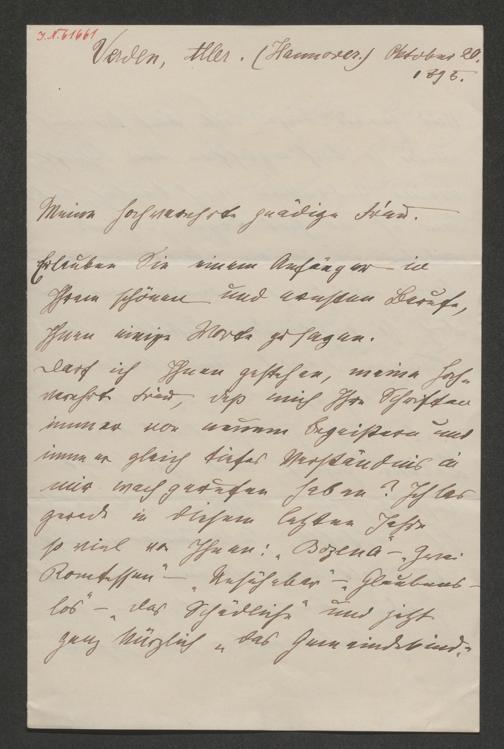 J.N. 61661
Verden, Aller. (Hannover.) Oktober 20.
1895.
Meine hochverehrte gnädige Frau.
Erlauben Sie einem Anfänger in
Ihrem schönen und ernsten Berufe,
Ihnen einige Worte zu sagen.
Darf ich Ihnen gestehen, meine hoch-
verehrte Frau, daß mich Ihre Schriften
immer von neuem begeistern und
immer gleich tiefes Verständnis in
mir wachgerufen haben? Ich las
gerade in diesem letzten Jahre
so viel von Ihnen: „Božena" – „Zwei
Komtessen" – „Unsühnbar" – „Glaubens-
los" – „das Schädliche" und jetzt
ganz kürzlich „das Gemeindekind."